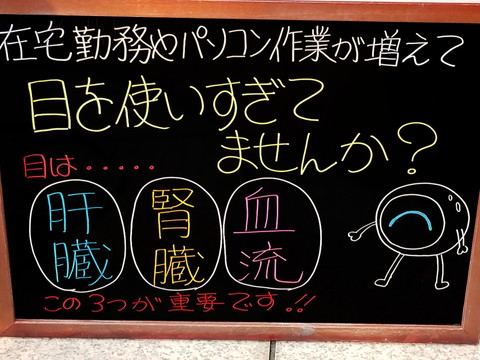 在宅勤務やパソコン作業が増えて
目を使いすぎて
ませんか?
目は・・・・・
肝臓 腎臓 血流
この3つが重要です!!